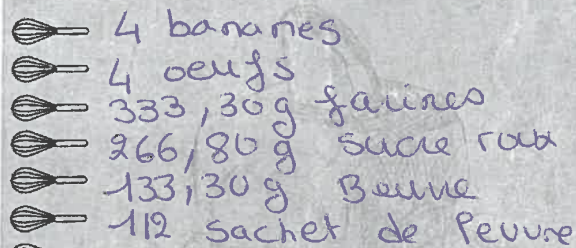 4 bananes
4 oeufs
333,30g farines
266,80g sucre roux
133,30g Beurre
1/2 sachet de levure